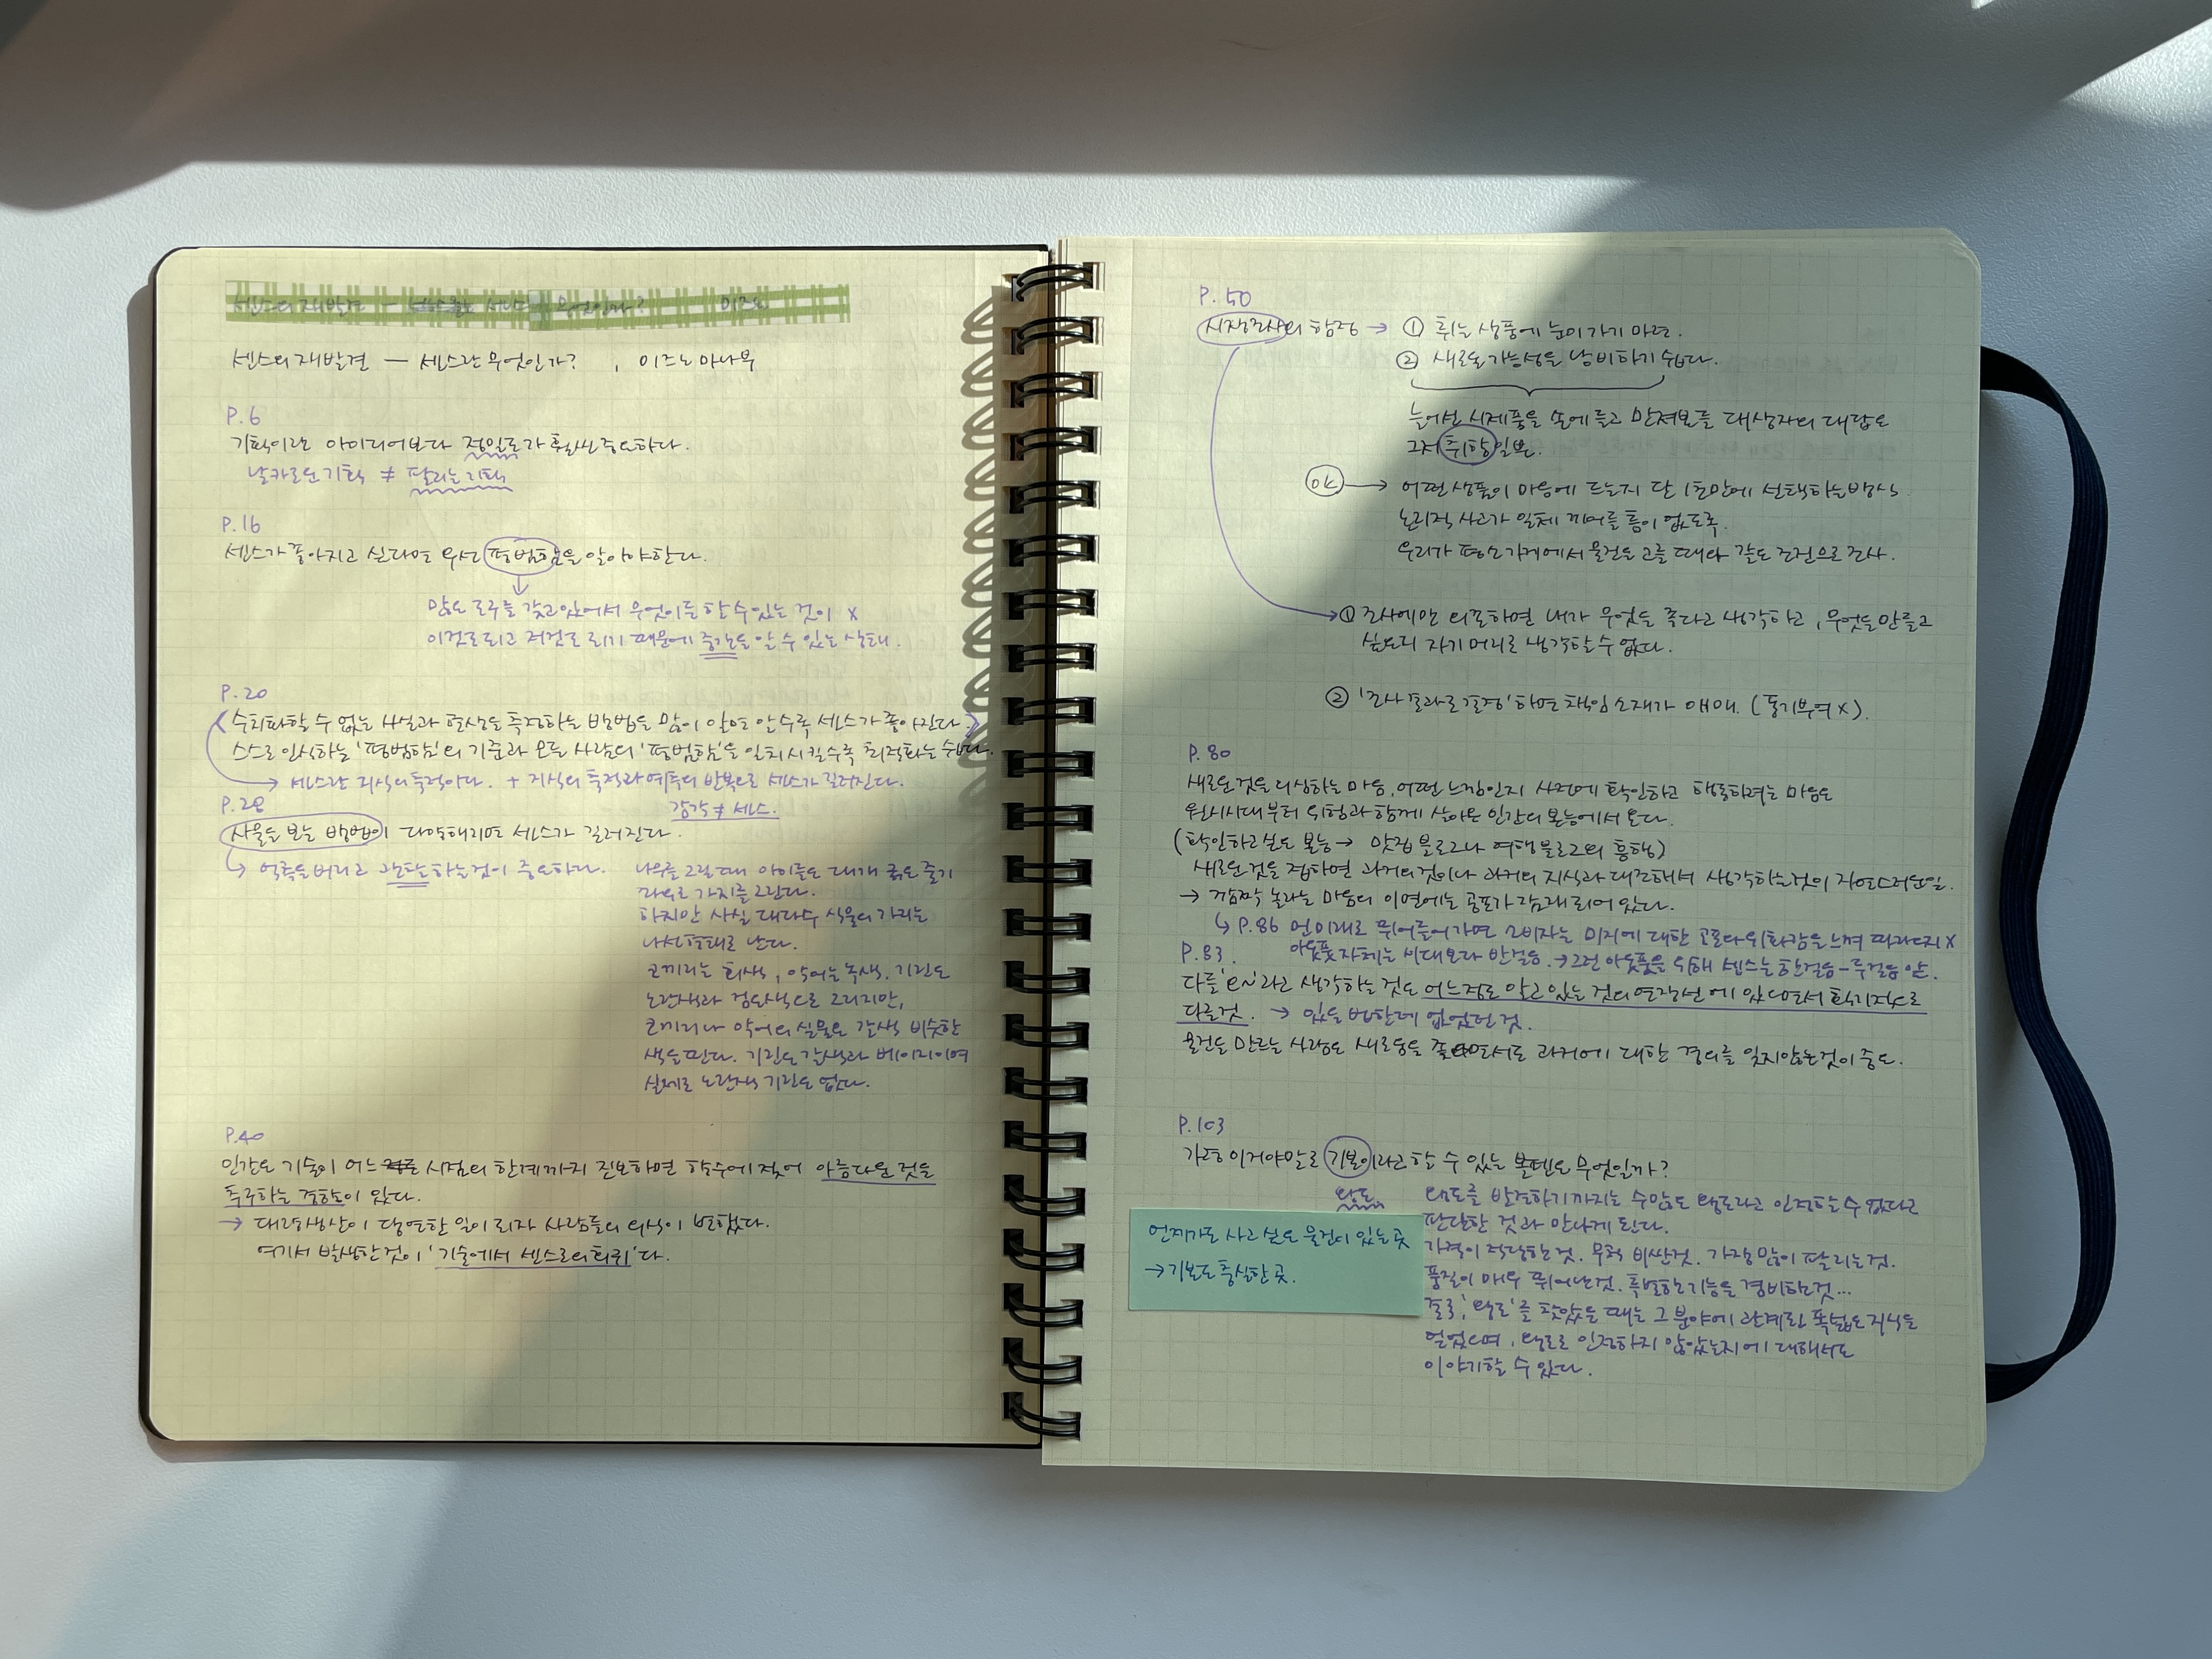 센스의 재발견 —
센스의 재발견 — 센스란 무엇인가? , 미즈노 마나부
P.6
기획이란 아이디어보다 정밀도가 훨씬 중요하다.
날카로운 기획 ≠ 팔리는 기획
P.16
센스가 좋아지고 싶다면 우선 평범함을 알아야한다.
많은 도구를 갖고 있어서 무엇이든 할 수 있는 것이 x
이것도 되고 저것도 되기 때문에 중간을 알 수 있는 상태.
P.20
수치화할 수 없는 사실과 현상을 측정하는 방법을 많이 알면 알수록 센스가 좋아진다.
스스로 인식하는 '평범함'의 기준과 모든 사람의 '평범함'을 일치시킬수록 최적화는 쉽다.
→ 센스란 지식의 축적이다. + 지식의 축적과 예측의 반복으로 센스가 길러진다.
감각 ≠ 센스.
P.28
사물을 보는 방법이 다양해지면 센스가 길러진다.
↳ 억측을 버리고 관찰하는 것이 중요하다.
나무를 그릴 때 아이들은 대개 굵은 줄기
좌우로 가지를 그린다.
하지만 사실 대다수 식물의 가지는
나선형태로 난다.
코끼리는 회색, 악어는 녹색, 기린은
노란색과 검은색으로 그리지만,
코끼리나 악어의 실물은 갈색 비슷한
색을 띤다. 기린도 갈색과 베이지이며
실제로 노란색 기린은 없다.
P.40
인간은 기술이 어느 시점의 한계까지 진보하면 향수에 젖어 아름다운 것을
추구하는 경향이 있다.
→ 대량생산이 당연한 일이 되자 사람들의 의식이 변했다.
여기서 발생한 것이 '기술에서 센스로의 회귀'다.
P.50
시장조사의 함정 → ① 튀는 상품에 눈이 가기 마련.
② 새로운 가능성을 낭비하기 쉽다.
늘어선 시제품을 손에 들고 만져보는 대상자의 대답은
그저 취향 일뿐.
OK → 어떤 상품이 마음에 드는지 단 1초만에 선택하는 방식
논리적 사고가 일체 끼어들 틈이 없도록.
우리가 평소 가게에서 물건을 고를 때와 같은 조건으로 조사.
① 조사에만 의존하면 내가 무엇을 좋다고 생각하고, 무엇을 만들고
싶은지 자기 머리로 생각할 수 없다.
② '조사 결과로 결정'하면 책임 소재가 애매. (동기부여 x).
P.80
새로운 것을 의심하는 마음, 어떤 느낌인지 사전에 확인하고 행동하려는 마음은
원시시대부터 위험과 함께 살아온 인간의 본능에서 온다.
(확인하고 싶은 본능 → 맛집 블로그나 여행 블로그의 흥행)
새로운 것을 접하면 과거의 것이나 과거의 지식과 대조해서 생각하는 것이 자연스러운 일.
→ 깜짝 놀라는 마음의 이면에는 공포가 잠재되어 있다.
↳ P.86 먼 미래로 뛰어들어가면 소비자는 미지에 대한 공포와 위화감을 느껴 따라오지 x
아웃풋 자체는 시대보다 반걸음. → 그런 아웃풋을 위해 센스는 한걸음-두걸음 앞.
P.83.
다들 '와~'라고 생각하는 것은 어느정도 알고 있는 것의 연장선에 있으면서 획기적으로
다른 것. → 있을 법한데 없었던 것.
물건을 만드는 사람은 새로움을 좇으면서도 과거에 대한 경의를 잊지 않는 것이 중요.
P.103
가장 이거야말로 기본이라고 할 수 있는 볼펜은 무엇일까?
왕도
왕도를 발견하기까지는 수많은 왕도라고 인정할 수 없다고
판단한 것과 만나게 된다.
가격이 적당한 것. 무척 비싼 것. 가장 많이 팔리는 것.
품질이 매우 뛰어난 것. 특별한 기능을 겸비한 것...
결국, '왕도'를 찾았을 때는 그 분야에 관계된 폭넓은 지식을
얻었으며, 왕도로 인정하지 않았는지에 대해서도
이야기할 수 있다.
언제가도 사고 싶은 물건이 있는 곳
→ 기본도 충실한 곳.